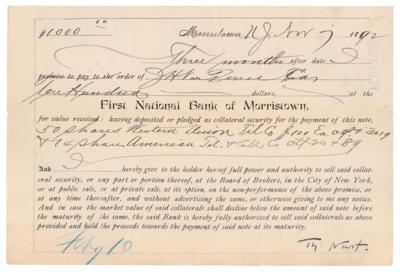 $1000 00 Morristown, N.J. Nov 7 1892
Three months after date I
promise to pay to the order of
Hundred dollars, at the
First National Bank of Morristown,
for value received: having deposited or pledged as collateral security for the payment of this note,
50 shares Western Union Tel. Co
shares American Tel. & Cable Co
And I hereby give to the holder hereof full power and authority to sell said collat-
eral security, or any part or portion thereof, at the Board of Brokers, in the City of New York,
or at public sale, or at private sale, at its option, on the non-performance of the above promise, or
at any time thereafter, and without advertising the same, or otherwise giving to me any notice.
And in case the market value of said collaterals shall decline below the amount of said note before
the maturity of the same, the said Bank is hereby fully authorized to sell said collaterals as above
provided and hold the proceeds towards the payment of said note at its maturity.
Feby 10
Th Nast.